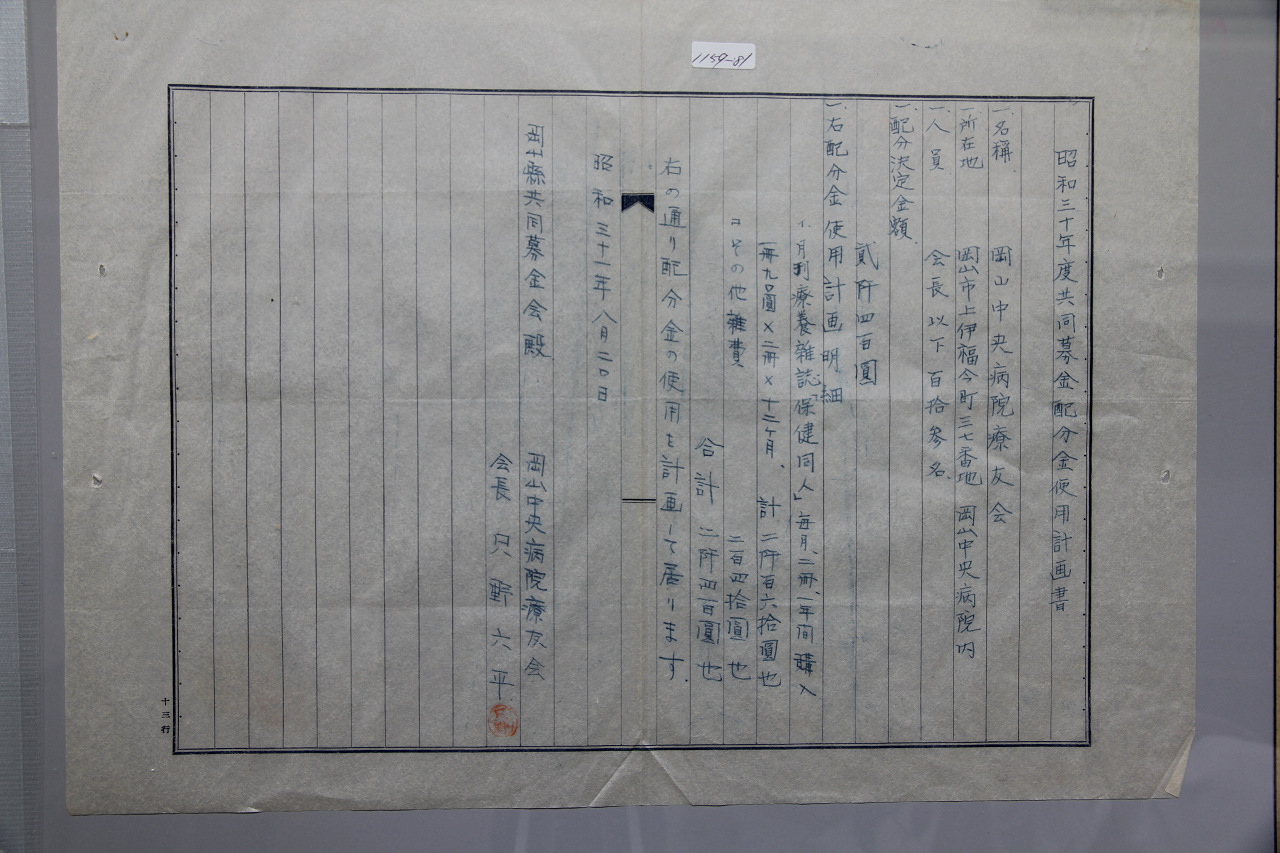 1159-81
昭和三十年度共同募金配分金使用計画書
一、名稱 岡山中央病院療友会
一、所在地 岡山市上伊福今町三七番地 岡山中央病院内
一、人員 会長以下百拾参名、
一、配分決定金額、
貳阡四百圓
一、右配分金使用計画明細
イ、月刊療養雑誌「保健同人」毎月、二冊、一年間購入
一冊九〇圓×二冊×十二ヶ月、計 二阡百六拾圓也
ロ その他雑費 二百四拾圓也
合計 二阡四百圓也
右の通り配分金の使用を計画して居ります.
昭和三十一年八月二〇日
岡山縣共同募金会殿
岡山中央病院療友会
会長 只野六平
十三行